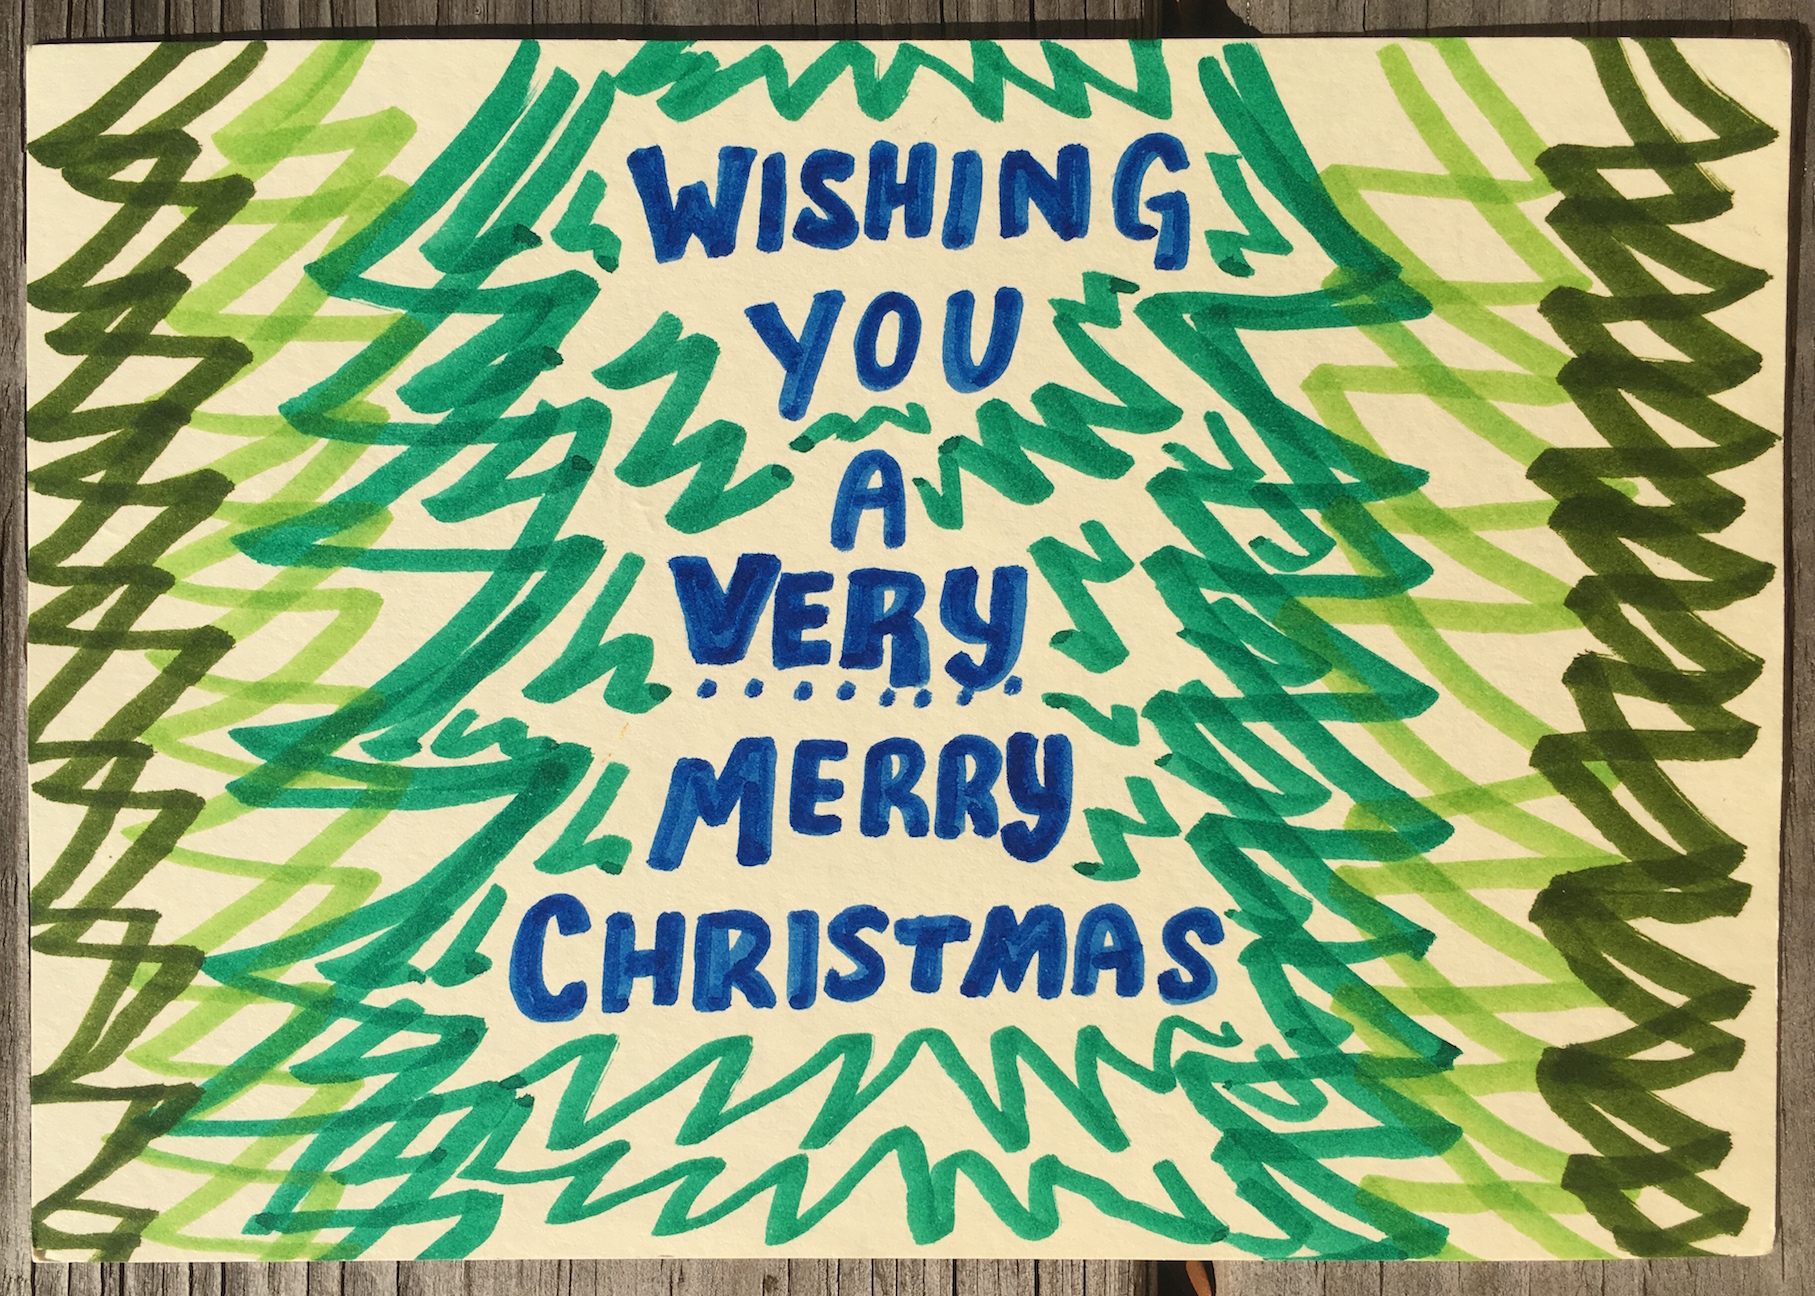 WISHING
YOU
A
VERY
MERRY
CHRISTMAS